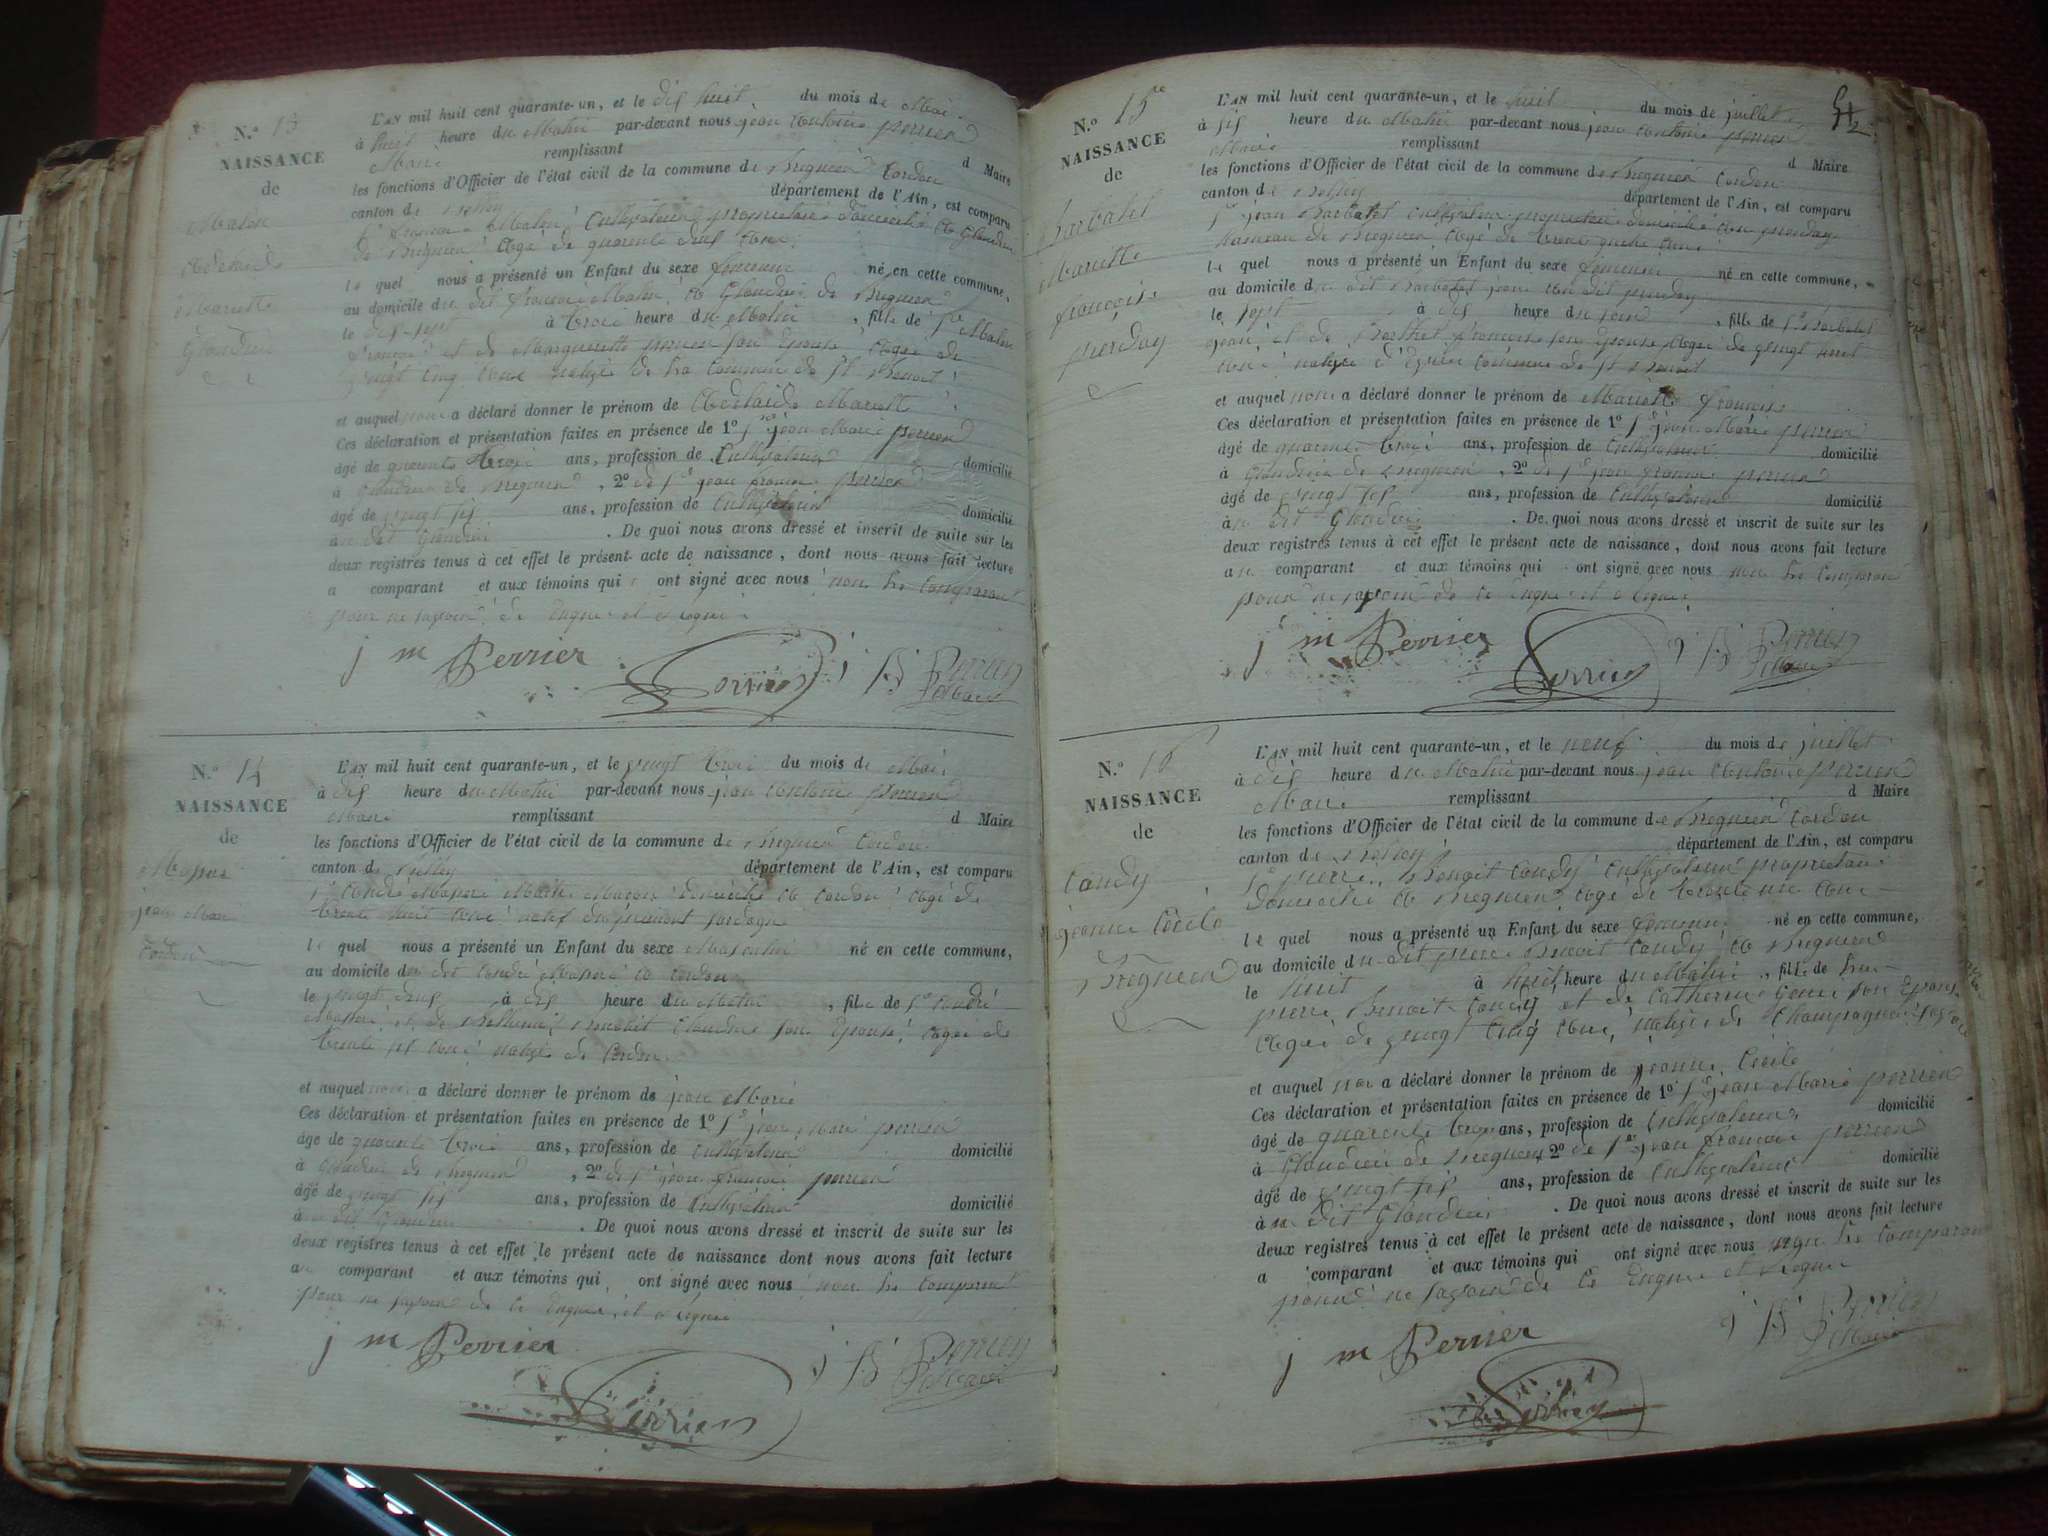 N.º 13
NAISSANCE
de
Adelaide
Mariette
Glandieu
L'AN mil huit cent quarante-un, et le dix huit du mois de Mai
à huit heure du Matin par-devant nous jean Antoine perrier
Maire remplissant d Maire
les fonctions d'Officier de l'état civil de la commune de Bregnier Cordon
canton de Belley département de l'Ain, est comparu
cultivateur proprietaire domicilié à Glandieu
de Bregnier agé de quarante deux ans
le quel nous a présenté un Enfant du sexe feminin né en cette commune,
au domicile du dit françois à Glandieu de Bregnier
le dix sept à trois heure du Matin, fille de
françois et de Marguerette son epouse agée de
vingt cinq ans native de la commune de St Benoit
et auquel nous a déclaré donner le prénom de Adelaide Mariette
Ces déclaration et présentation faites en présence de 1º Sr jean Marie perrier
âgé de quarente trois ans, profession de Cultivateur domicilié
à Glandieu de Bregnier, 2º de Sr jean françois perrier
âgé de vingt six ans, profession de Cultivateur domicilié
au dit Glandieu. De quoi nous avons dressé et inscrit de suite sur les
deux registres tenus à cet effet le présent acte de naissance, dont nous avons fait lecture
a comparant et aux témoins qui ont signé avec nous non le comparant
pour ne savoir de enquis et requis
j m Perrier Perrier Perrier Maire
N.º 14
NAISSANCE
de
jean Marie
Cordon
L'AN mil huit cent quarante-un, et le vingt trois du mois de Mai
à dix heure du Matin par-devant nous jean Antoine perrier
Maire remplissant d Maire
les fonctions d'Officier de l'état civil de la commune de Bregnier Cordon
canton de Belley département de l'Ain, est comparu
Sr André Maçon domicilié à Cordon agé de
trente huit ans natif du piemont
le quel nous a présenté un Enfant du sexe Masculin né en cette commune,
au domicile du dit André à Cordon
le vingt deux à dix heure du Matin, fils de Sr André
et de son Epouse agée de
trente six ans native de Cordon
et auquel nous a déclaré donner le prénom de jean Marie
Ces déclaration et présentation faites en présence de 1º Sr jean Marie perrier
âgé de quarente trois ans, profession de Cultivateur domicilié
à Glandieu de Bregnier, 2º de Sr jean françois perrier
âgé de vingt six ans, profession de Cultivateur domicilié
à au dit Glandieu. De quoi nous avons dressé et inscrit de suite sur les
deux registres tenus à cet effet le présent acte de naissance dont nous avons fait lecture
au comparant et aux témoins qui ont signé avec nous non le comparant
pour ne savoir de ce enquis et requis
j m Perrier Perrier Perrier Maire
N.º 15
NAISSANCE
de
Barbatet
Mariette
françoise
L'AN mil huit cent quarante-un, et le huit du mois de juillet
à six heure du Matin par-devant nous jean Antoine perrier
Maire remplissant d Maire
les fonctions d'Officier de l'état civil de la commune de Bregnier Cordon
canton de Belley département de l'Ain, est comparu
Sr jean Barbatet cultivateur proprietaire domicilié au
hameau de Bregnier agé de trente quatre ans
le quel nous a présenté un Enfant du sexe feminin né en cette commune,
au domicile du dit Barbatet jean au dit
le sept à dix heure du soir, fille de Sr Barbatet
jean et de françoise son epouse agée de vingt huit
ans native d'Izieu commune de St Benoit
et auquel nous a déclaré donner le prénom de Mariette françoise
Ces déclaration et présentation faites en présence de 1º Sr jean Marie perrier
âgé de quarente trois ans, profession de Cultivateur domicilié
à Glandieu de Bregnier, 2º de Sr jean françois perrier
âgé de vingt six ans, profession de Cultivateur domicilié
à au dit Glandieu. De quoi nous avons dressé et inscrit de suite sur les
deux registres tenus à cet effet le présent acte de naissance, dont nous avons fait lecture
au comparant et aux témoins qui ont signé avec nous non le comparant
pour ne savoir de ce enquis et requis
j m Perrier Perrier Perrier Maire
N.º 16
NAISSANCE
de
Candy
jeanne Cécile
Bregnier
L'AN mil huit cent quarante-un, et le neuf du mois de juillet
à dix heure du Matin par-devant nous jean Antoine perrier
Maire remplissant d Maire
les fonctions d'Officier de l'état civil de la commune de Bregnier Cordon
canton de Belley département de l'Ain, est comparu
Sr pierre Benoit Candy cultivateur proprietaire
domicilié à Bregnier agé de trente un ans
le quel nous a présenté un Enfant du sexe feminin né en cette commune,
au domicile du dit pierre Benoit Candy à Bregnier
le huit à huit heure du Matin, fille de
pierre Benoit Candy et de Catherine son epouse
agée de vingt cinq ans, native de Champagneux
et auquel nous a déclaré donner le prénom de jeanne Cécile
Ces déclaration et présentation faites en présence de 1º Sr jean Marie perrier
âgé de quarente trois ans, profession de Cultivateur domicilié
à Glandieu de Bregnier 2º de Sr jean françois perrier
âgé de vingt six ans, profession de Cultivateur domicilié
à au dit Glandieu. De quoi nous avons dressé et inscrit de suite sur les
deux registres tenus à cet effet le présent acte de naissance, dont nous avons fait lecture
a comparant et aux témoins qui ont signé avec nous non le comparant
pour ne savoir de ce enquis et requis
j m Perrier Perrier Perrier Maire